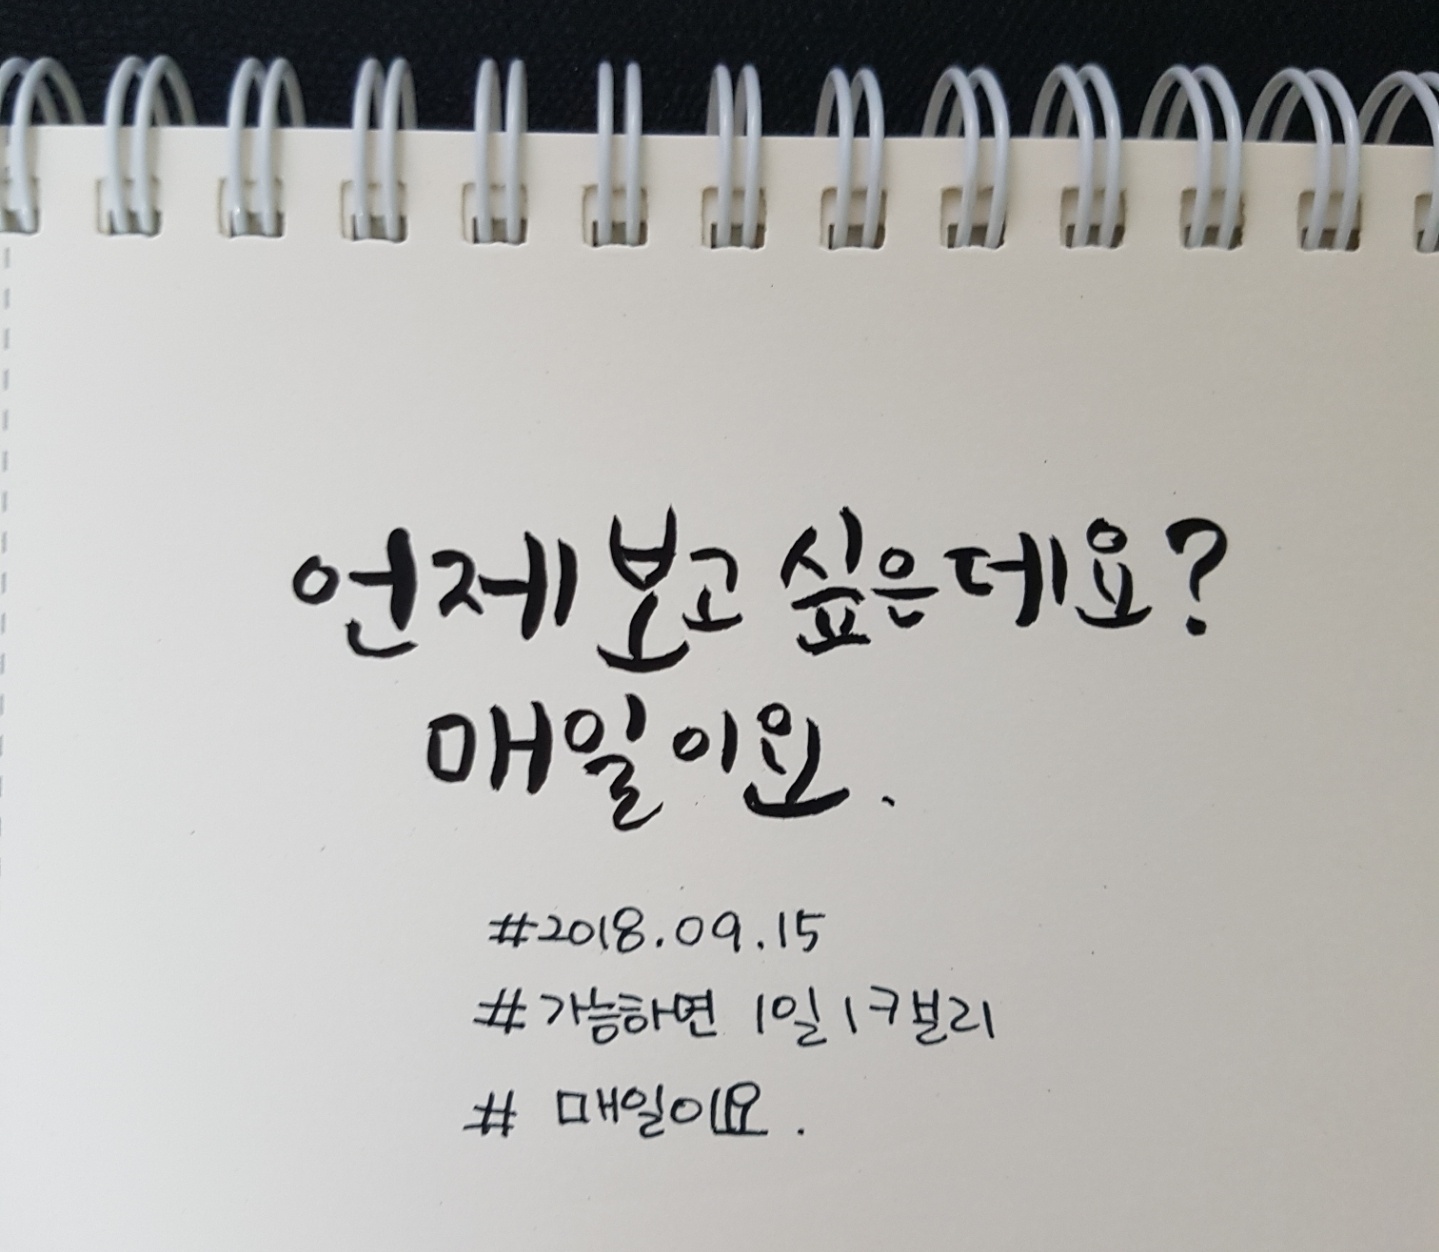 언제 보고 싶은데요?
매일이요.
#2018.09.15
#가능하면 1일 1캘리
# 매일이요.